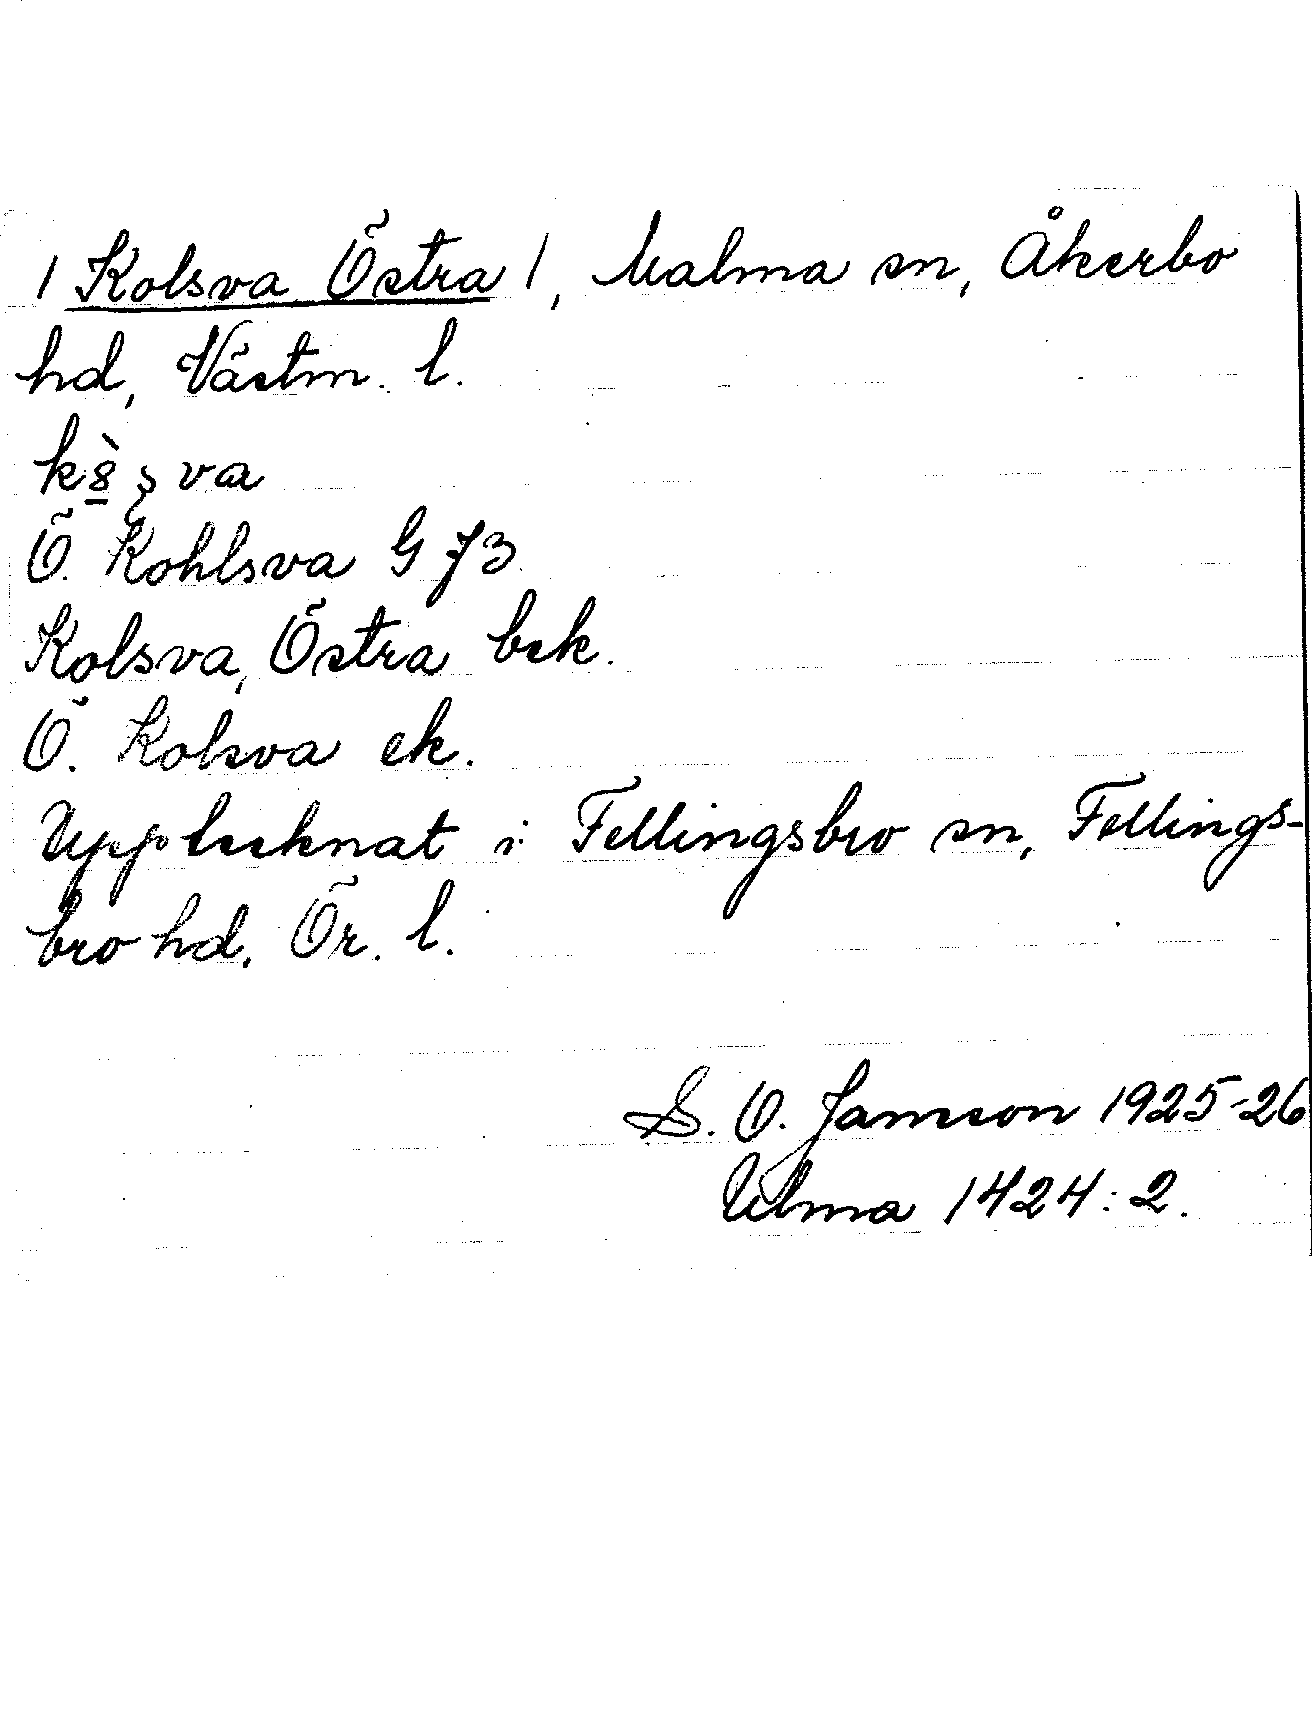 / Kolsva Östra /, Malma sn, Åkerbo
hd, Västm. l.
Ö. Kohlsva G 73
Kolsva, Östra bek.
Ö. Kolsva ek.
Upptecknat i Fellingsbro sn, Fellings-
bro hd. Ör. l.
S. O. Jamson 1925-26
Ulma 1424:2.